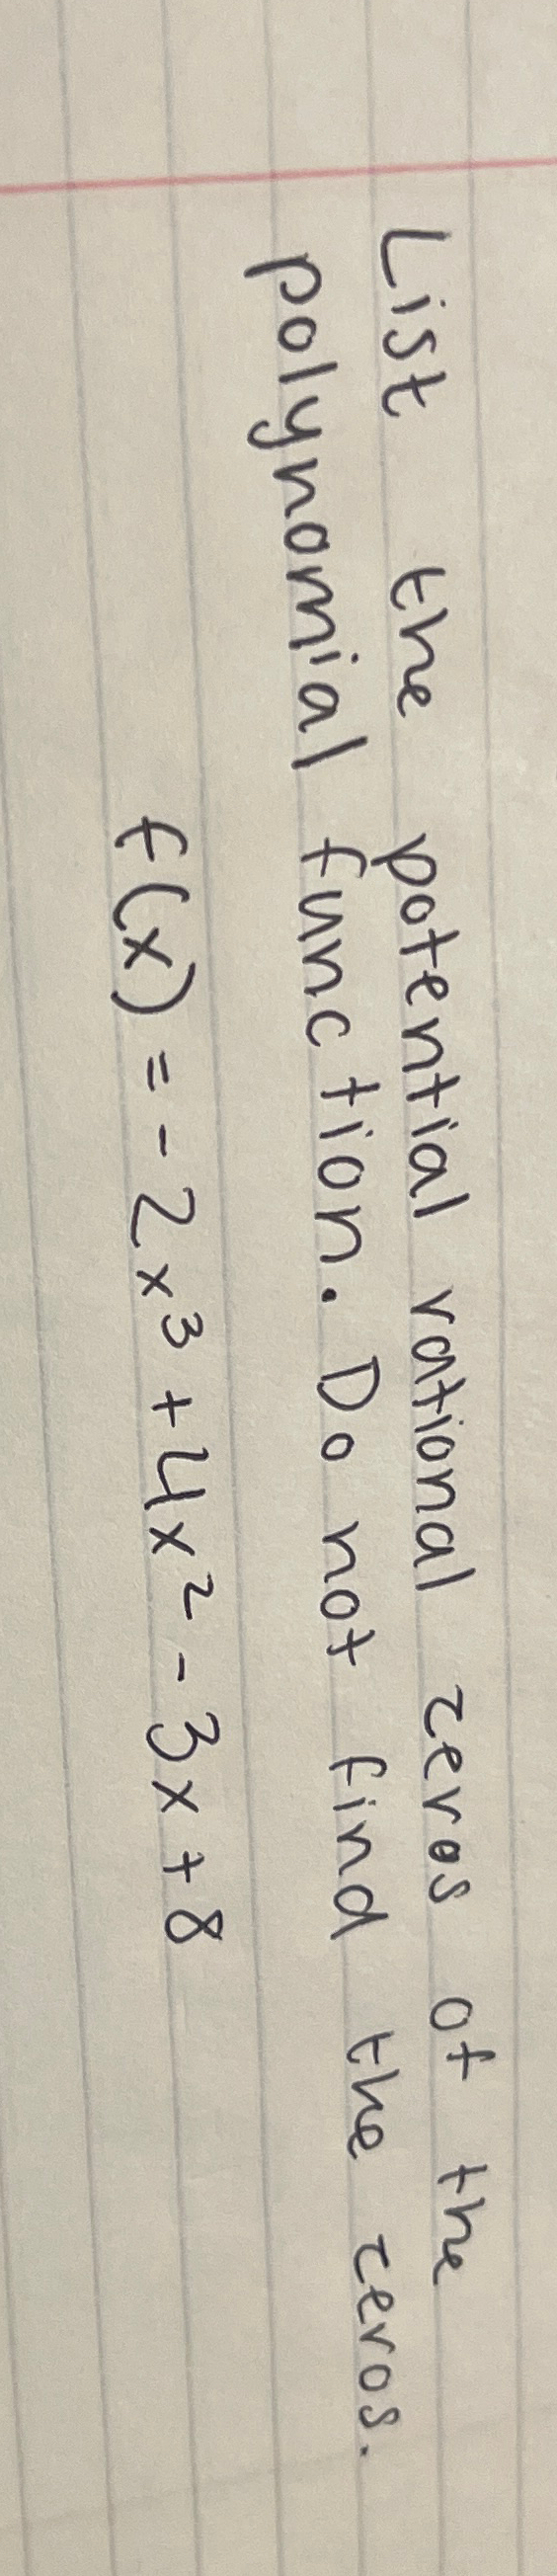 List the potential rational zeros of the
polynomial function. Do not find the zeros.
f(x) = -2x³ + 4x² - 3x + 8